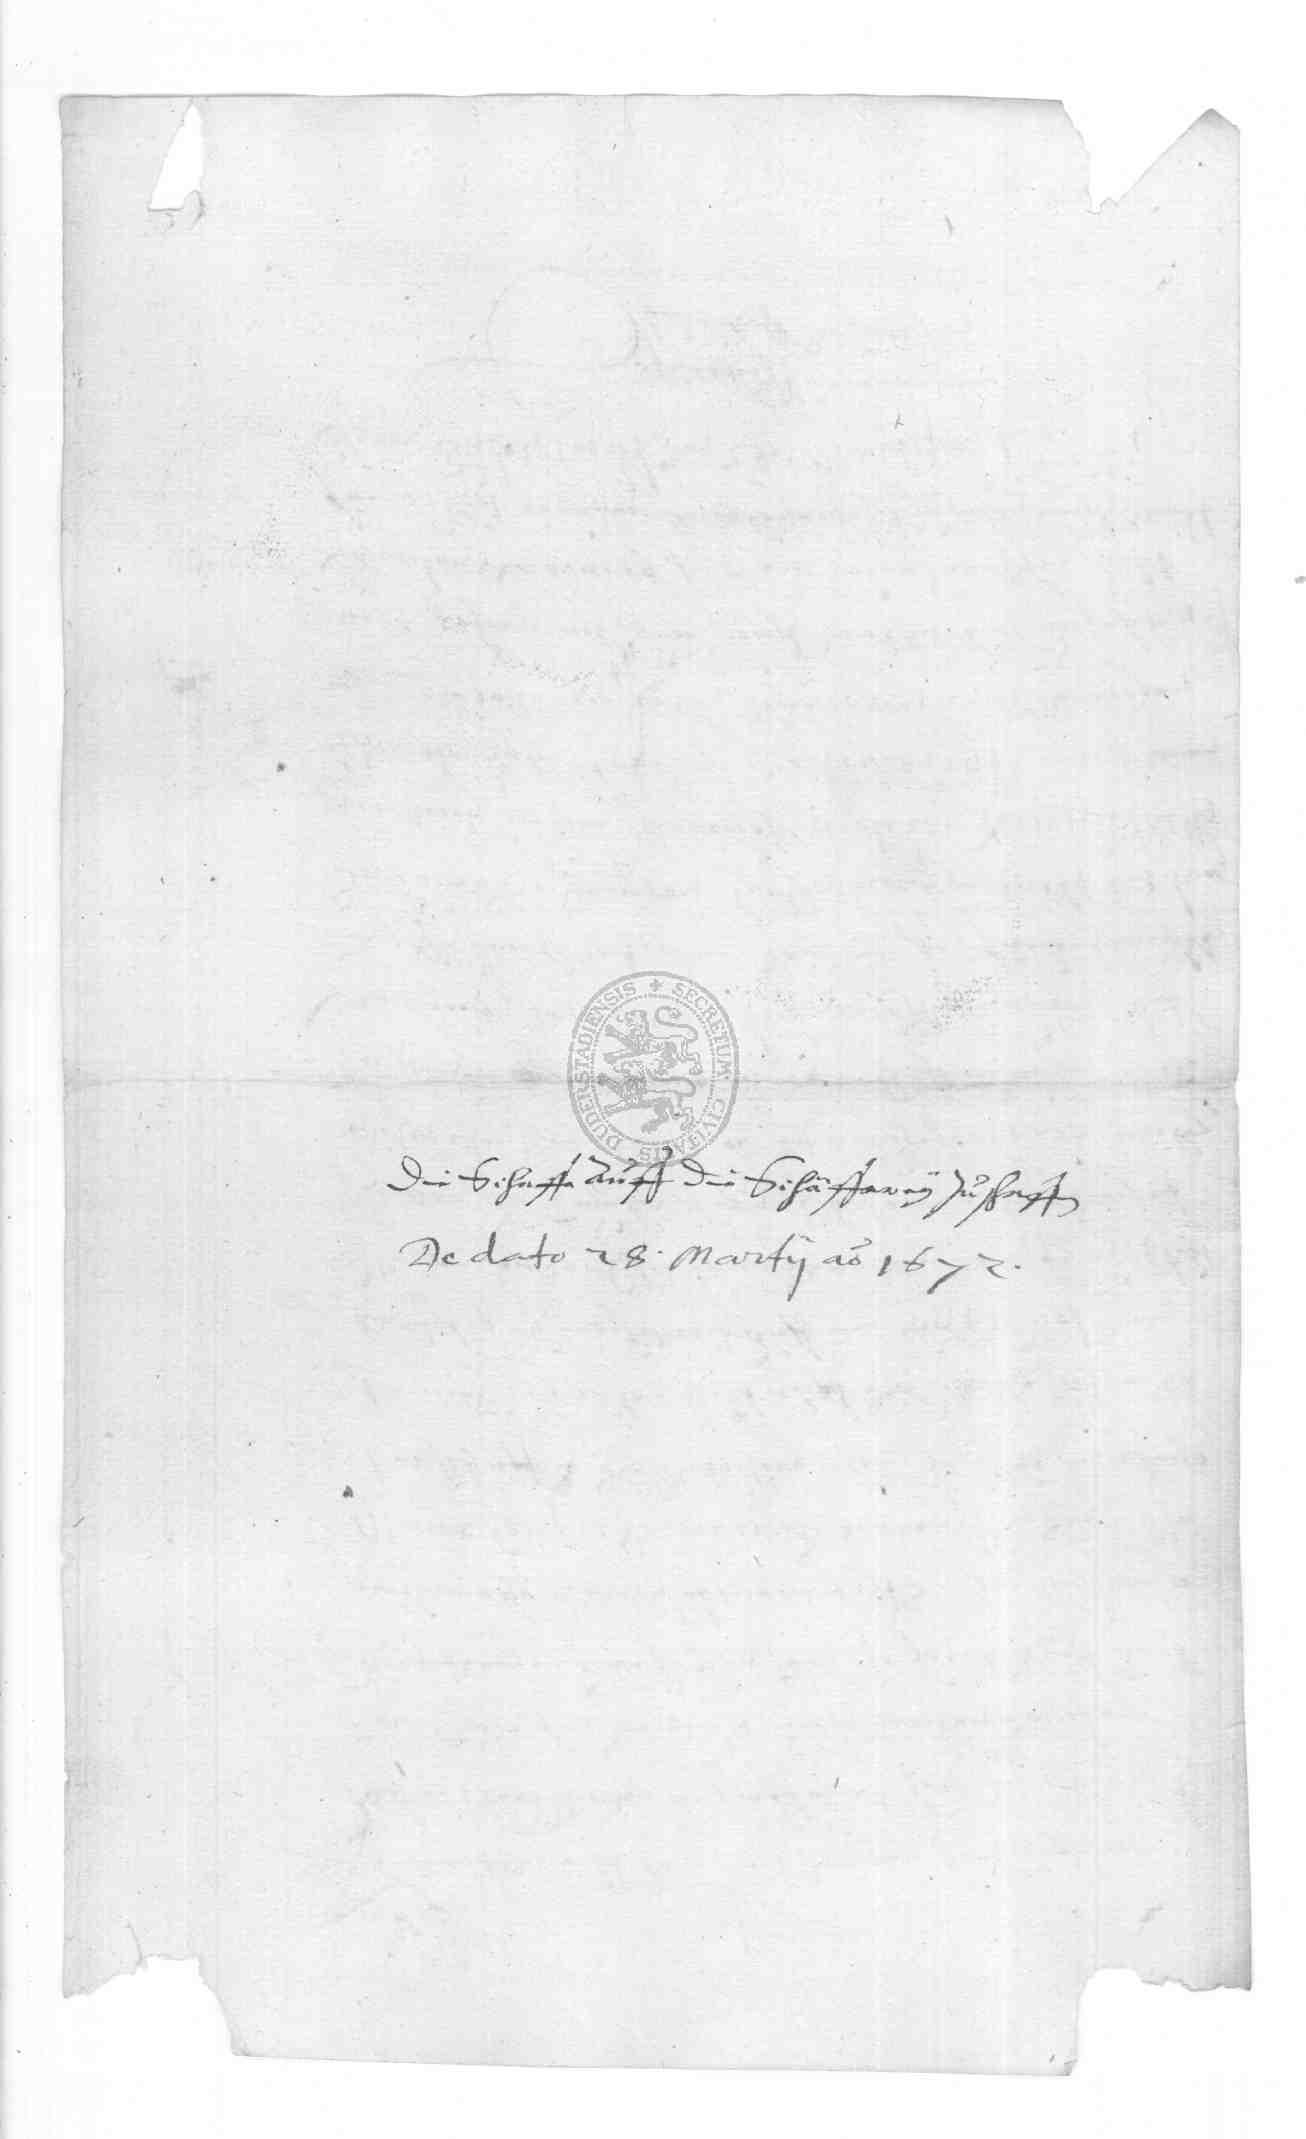 SECRETUM CIVITATIS DUDERSTADIENSIS
Die Schaffe auff die Schäfferey zu
De dato 28. Martij aō 1672.